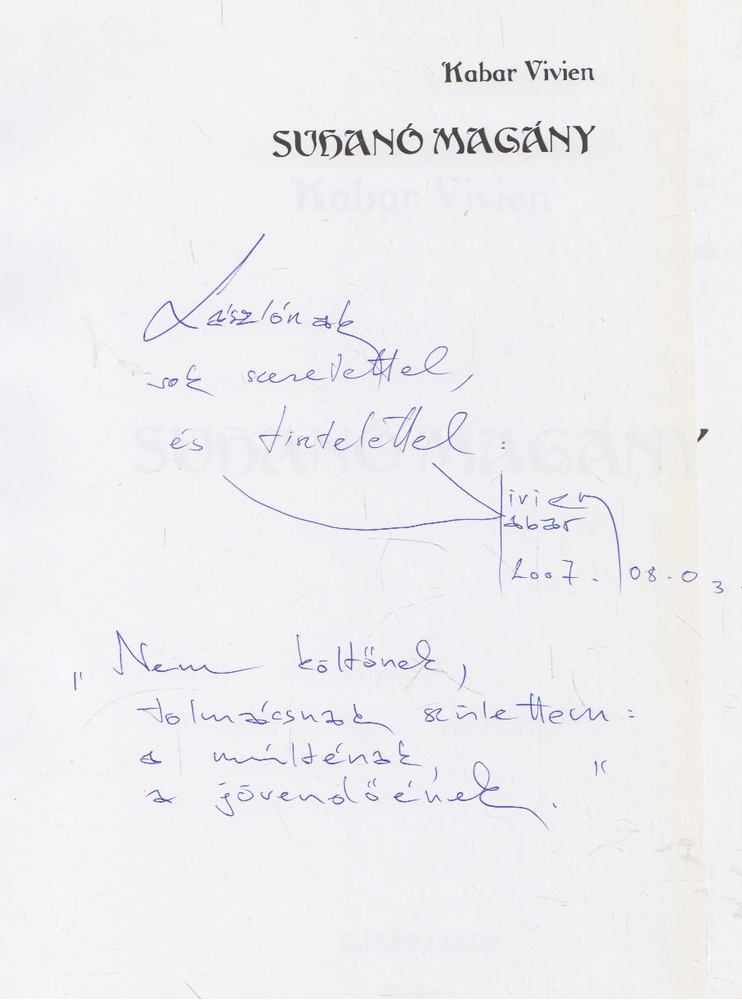 Kabar Vivien
SUHANÓ MAGÁNY
Lászlónak
sok szeretettel,
és tisztelettel:
ivien
abar
2007. 08. 03
„Nem költőnek,
tolmácsnak születtem:
a múlténak,
a jövendőének."